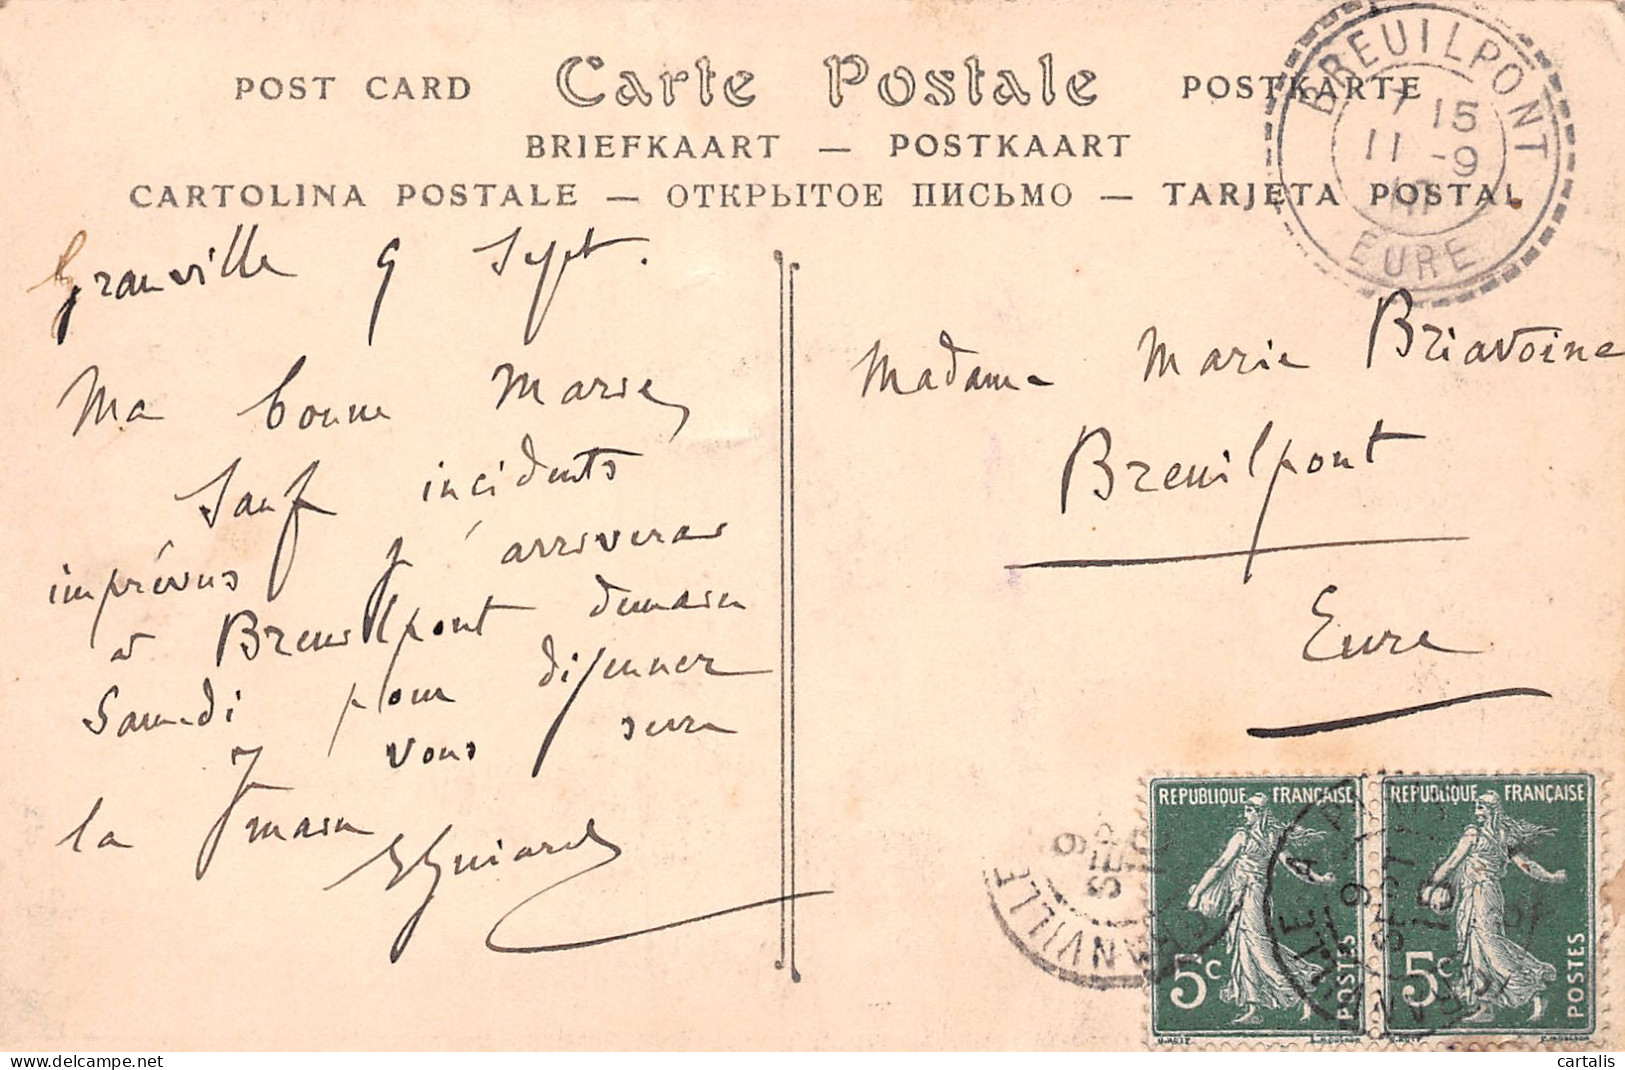 POST CARD Carte Postale POSTKARTE
BRIEFKAART — POSTKAART
CARTOLINA POSTALE — ОТКРЫТОЕ ПИСЬМО — TARJETA POSTAL
BREUILPONT
7 15
11 -9
10
EURE
Granville 9 Sept.
Ma bonne Marie,
Sauf incidents
imprévus j'arriverai
à Breuilpont demain
Samedi pour déjeuner
Je vous serre
la main
EGuiard
Madame Marie Briavoine
Breuilpont
Eure
GRANVILLE
9
SEPT
10
REPUBLIQUE FRANÇAISE
5c
POSTES
REPUBLIQUE FRANÇAISE
5c
POSTES
9
SEPT
10
delcampe.net
cartalis